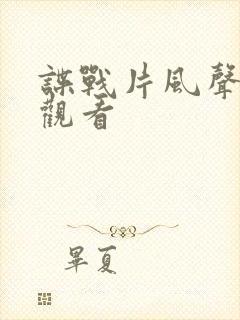 諜戰片風聲
觀看
畢夏